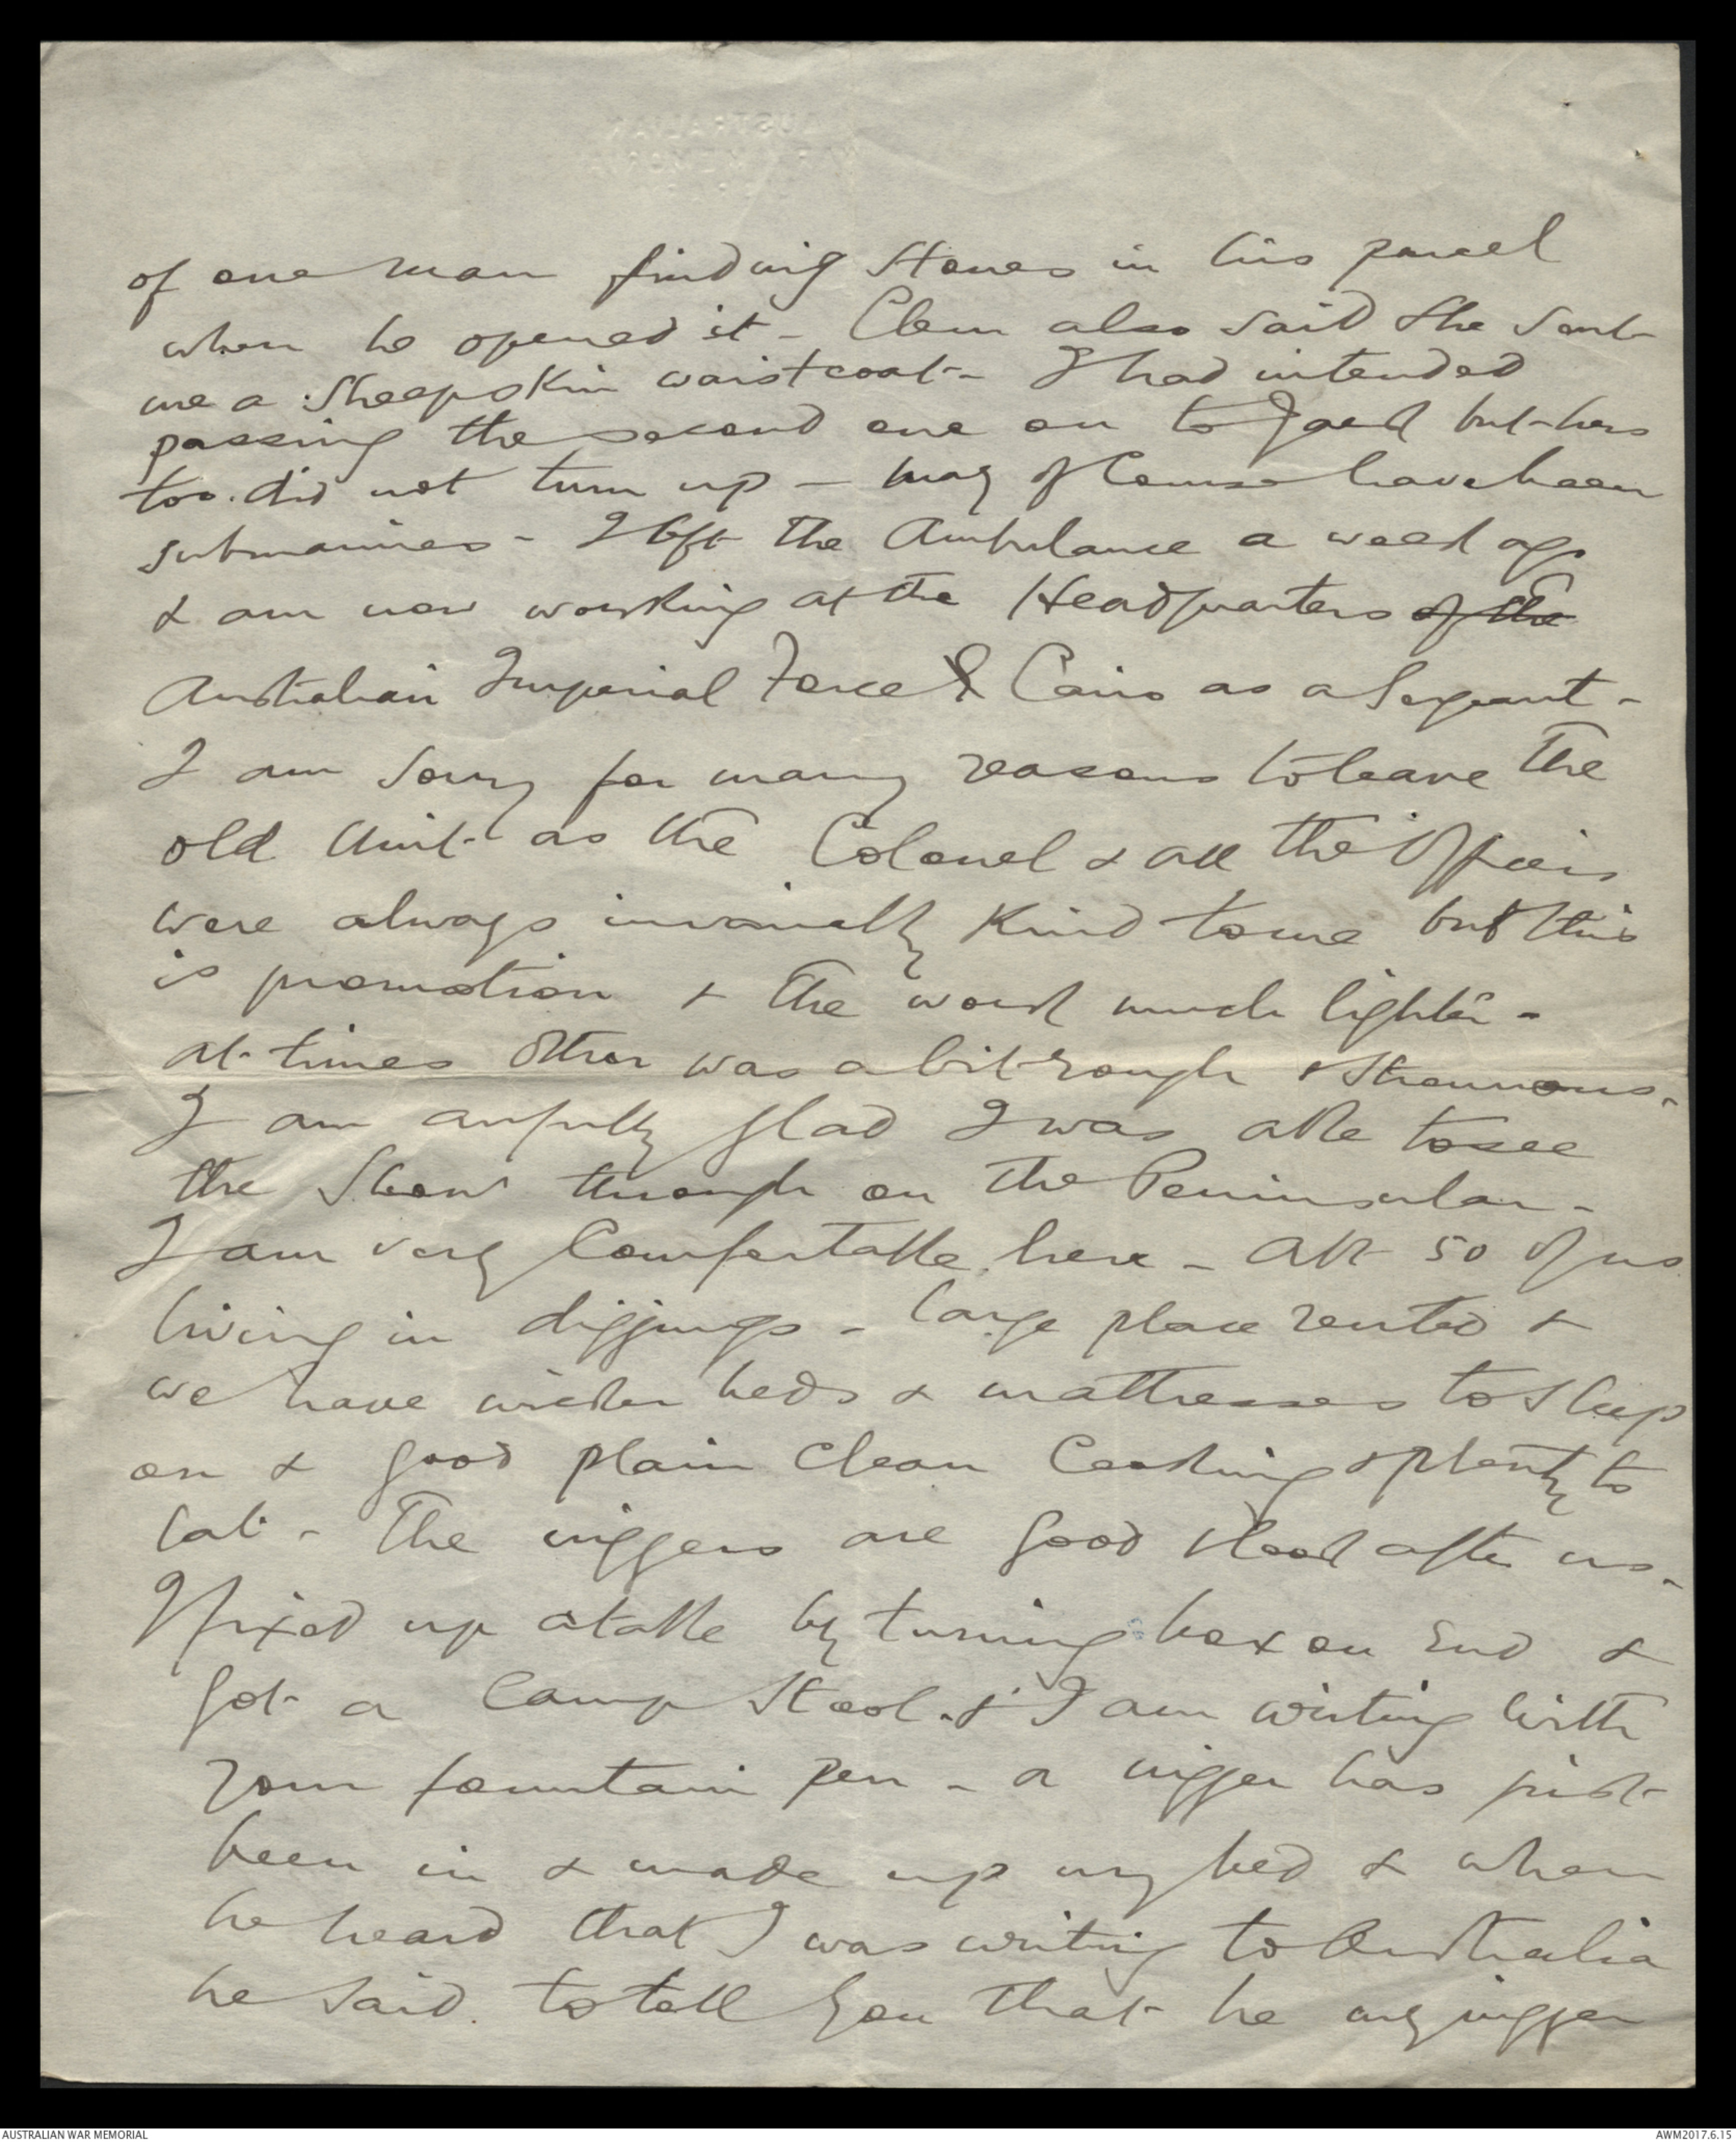 of one man finding stones in his parcel
when he opened it - Clem also said she sent
me a sheepskin waistcoat - I had intended
passing the second one on to Jack but hers
too. did not turn up - may of course have been
submarines - I left the Ambulance a week ago
& am now working at the Headquarters of the
Australian Imperial Force Cairo as a Sergeant -
I am sorry for many reasons to leave the
old Unit - as the Colonel & all the Officers
were always invariably kind to me but this
is promotion & the work much lighter -
at times other was a bit rough & strenuous -
I am awfully glad I was able to see
the show through on the Peninsular -
I am very comfortable here - abt 50 of us
living in diggings - large place rented &
we have wicker beds & mattresses to sleep
on & good plain clean cooking & plenty to
eat - The niggers are good & look after us -
I fixed up a table by turning box on end &
got a camp stool & I am writing with
your fountain pen - a nigger has just
been in & made up my bed & when
he heard that I was writing to Australia
he said. to tell you that he my nigger
AUSTRALIAN WAR MEMORIAL
AWM2017.6.15